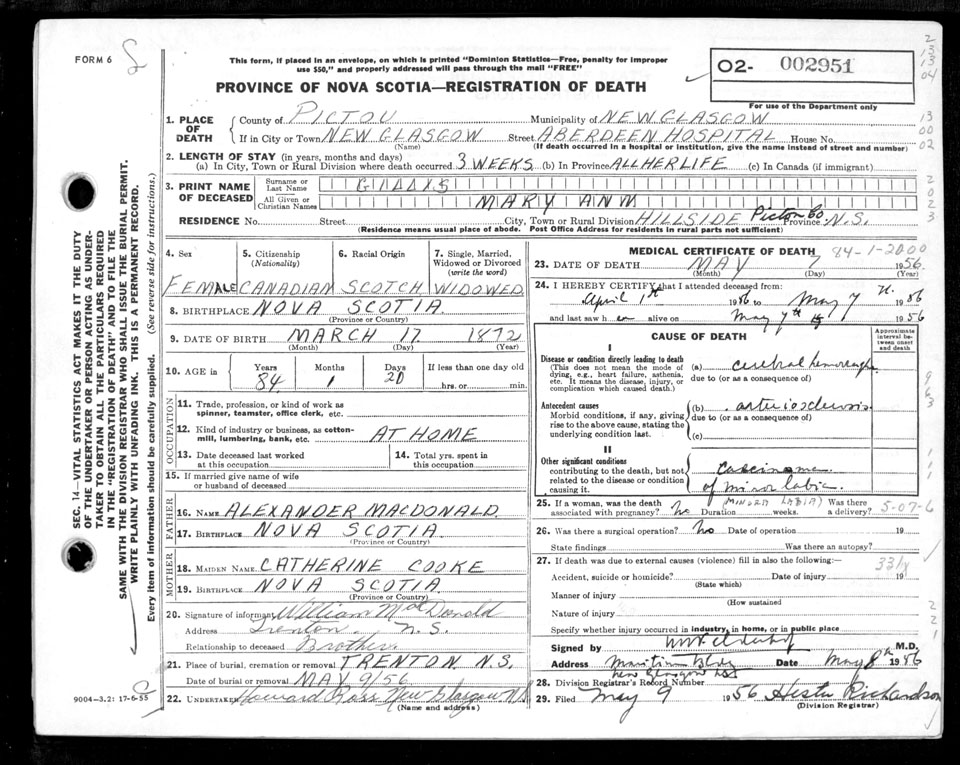 FORM 6
This form, if placed in an envelope, on which is printed "Dominion Statistics—Free, penalty for improper
use $50," and properly addressed will pass through the mail "FREE"
O2- 002951
For use of the Department only
PROVINCE OF NOVA SCOTIA—REGISTRATION OF DEATH
1. PLACE OF DEATH
County of PICTOU Municipality of NEW GLASGOW
If in City or Town NEW GLASGOW Street ABERDEEN HOSPITAL House No.
(Name) (If death occurred in a hospital or institution, give the name instead of street and number)
2. LENGTH OF STAY (in years, months and days)
(a) In City, Town or Rural Division where death occurred 3 WEEKS (b) In Province ALL HER LIFE (c) In Canada (if immigrant)
3. PRINT NAME OF DECEASED
Surname or Last Name
All Given or Christian Names MARY ANN
RESIDENCE No. Street City, Town or Rural Division HILLSIDE Pictou Co Province N.S.
(Residence means usual place of abode. Post Office Address for residents in rural parts not sufficient)
4. Sex 5. Citizenship (Nationality) 6. Racial Origin 7. Single, Married, Widowed or Divorced (write the word)
FEMALE CANADIAN SCOTCH WIDOWED
8. BIRTHPLACE NOVA SCOTIA
(Province or Country)
9. DATE OF BIRTH MARCH 17 1872
(Month) (Day) (Year)
10. AGE in Years Months Days If less than one day old
84 1 20 hrs. or min.
OCCUPATION
11. Trade, profession, or kind of work as
spinner, teamster, office clerk, etc.
12. Kind of industry or business, as cotton-
mill, lumbering, bank, etc. AT HOME
13. Date deceased last worked at this occupation
14. Total yrs. spent in this occupation
15. If married give name of wife
or husband of deceased
FATHER
16. NAME ALEXANDER MACDONALD
17. BIRTHPLACE NOVA SCOTIA
(Province or Country)
MOTHER
18. MAIDEN NAME CATHERINE COOKE
19. BIRTHPLACE NOVA SCOTIA
(Province or Country)
20. Signature of informant William MacDonald
Address Trenton N.S.
Relationship to deceased Brother
21. Place of burial, cremation or removal TRENTON N.S.
Date of burial or removal MAY 9/56
22. UNDERTAKER Howard Ross New Glasgow N.S.
(Name and address)
9004-3.2: 17-6-55
MEDICAL CERTIFICATE OF DEATH 84-1-2000
23. DATE OF DEATH MAY 7 1956
(Month) (Day) (Year)
24. I HEREBY CERTIFY that I attended deceased from:
April 1st 1956 to May 7 1956
and last saw her alive on May 7th 1956
CAUSE OF DEATH
Approximate interval between onset and death
I
Disease or condition directly leading to death
(This does not mean the mode of
dying, e.g., heart failure, asthenia,
etc. It means the disease, injury, or
complication which caused death.)
(a) cerebral hemorrhage
due to (or as a consequence of)
Antecedent causes
Morbid conditions, if any, giving
rise to the above cause, stating the
underlying condition last.
(b) arteriosclerosis
due to (or as a consequence of)
(c)
II
Other significant conditions
contributing to the death, but not
related to the disease or condition
causing it.
carcinoma
of minor labia
25. If a woman, was the death MINOR LABIA) Was there
associated with pregnancy? No Duration weeks. a delivery? 5-07-6
26. Was there a surgical operation? No Date of operation 19
State findings Was there an autopsy?
27. If death was due to external causes (violence) fill in also the following:— 331x
Accident, suicide or homicide? Date of injury 19
(State which)
Manner of injury
(How sustained
Nature of injury
Specify whether injury occurred in industry, in home, or in public place
Signed by M.D.
Address Maritime Bldg Date May 8th 1956
New Glasgow NS
28. Division Registrar's Record Number
29. Filed May 9 1956 Hester Richardson
(Division Registrar)
SEC. 14—VITAL STATISTICS ACT MAKES IT THE DUTY
OF THE UNDERTAKER OR PERSON ACTING AS UNDER-
TAKER TO OBTAIN ALL THE PARTICULARS REQUIRED
IN THE "REGISTRATION OF DEATH" AND TO FILE THE
SAME WITH THE DIVISION REGISTRAR WHO SHALL ISSUE THE BURIAL PERMIT.
WRITE PLAINLY WITH UNFADING INK. THIS IS A PERMANENT RECORD.
Every item of information should be carefully supplied. (See reverse side for instructions.)